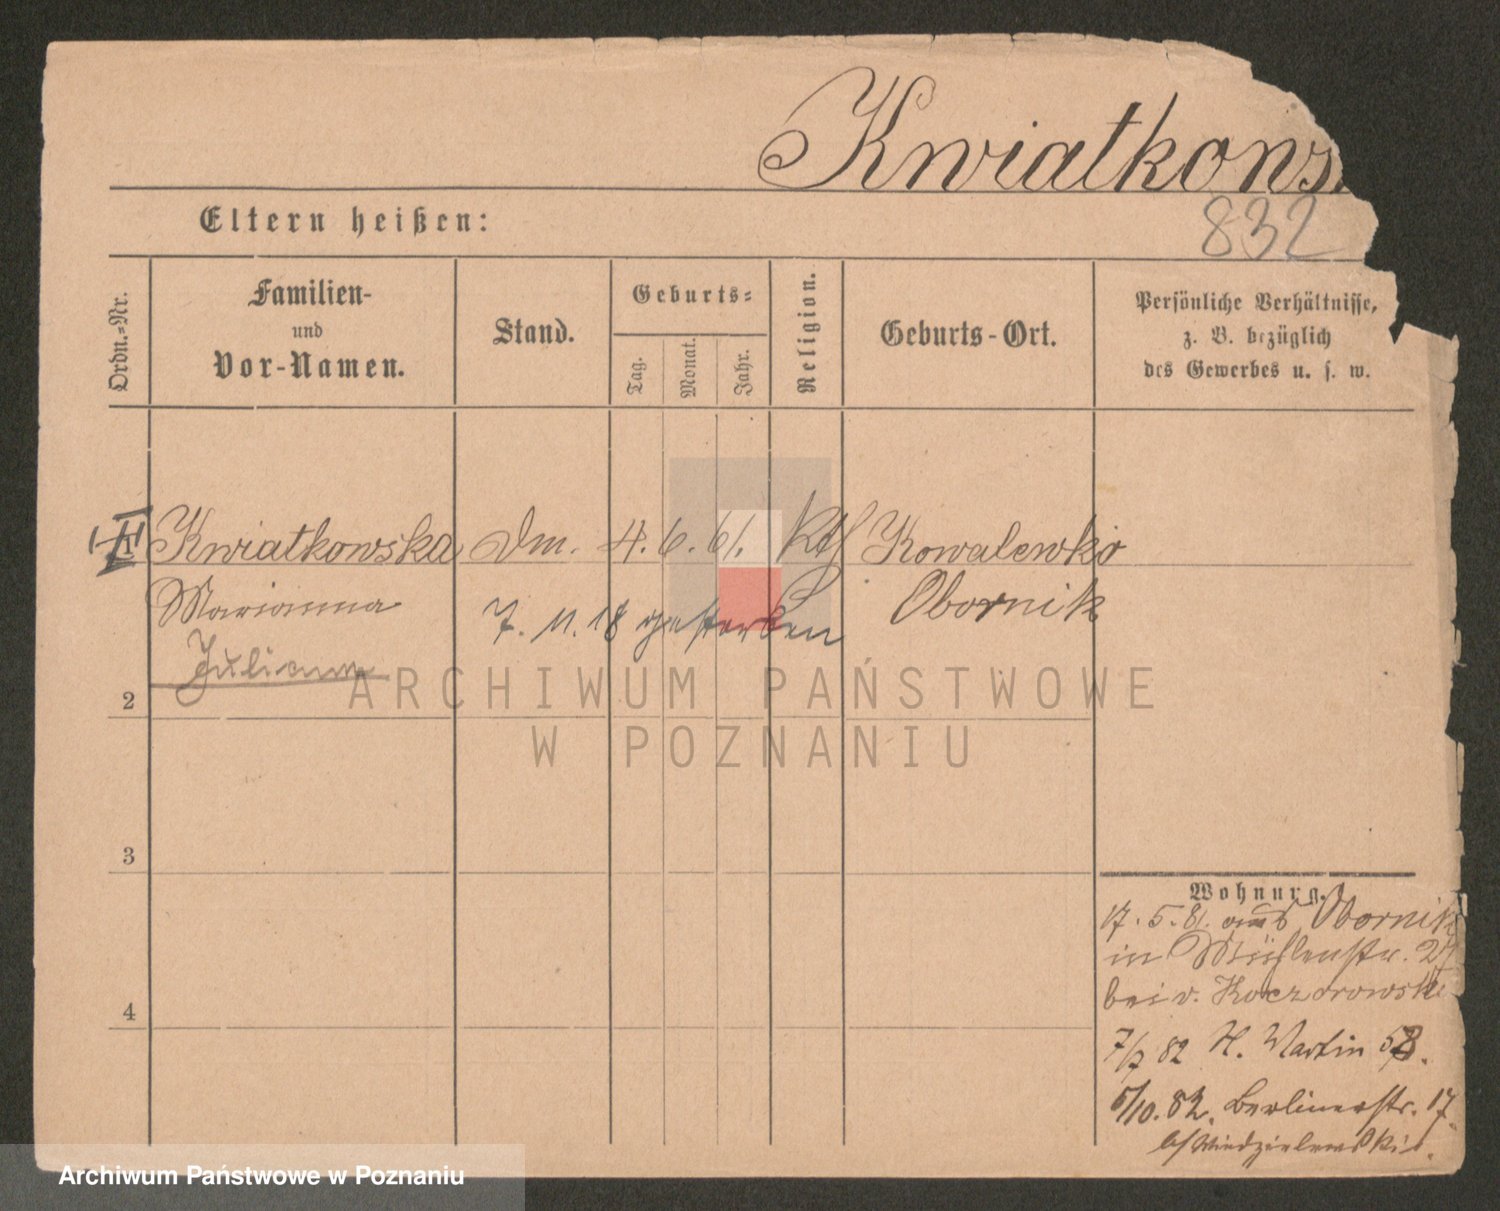 Kwiatkows
832
Eltern heißen:
Ordn.-Nr.
Familien-
und
Vor-Namen.
Stand.
Geburts-
Tag.
Monat.
Jahr.
Religion.
Geburts-Ort.
Persönliche Verhältnisse,
z. B. bezüglich
des Gewerbes u. s. w.
Kwiatkowska Dm. 4. 6. 61. Kth Kowalewko
Marianna Obornik
7. 11. 18 gestorben
Julianna
2
3
4
Wohnung.
17. 5. 81. aus Obornik
in Mühlenstr.
bei v. Koczorowski
7/7 82 H. Martin 58.
5/10. 82. Berlinerstr. 17.
ARCHIWUM PAŃSTWOWE
W POZNANIU
Archiwum Państwowe w Poznaniu